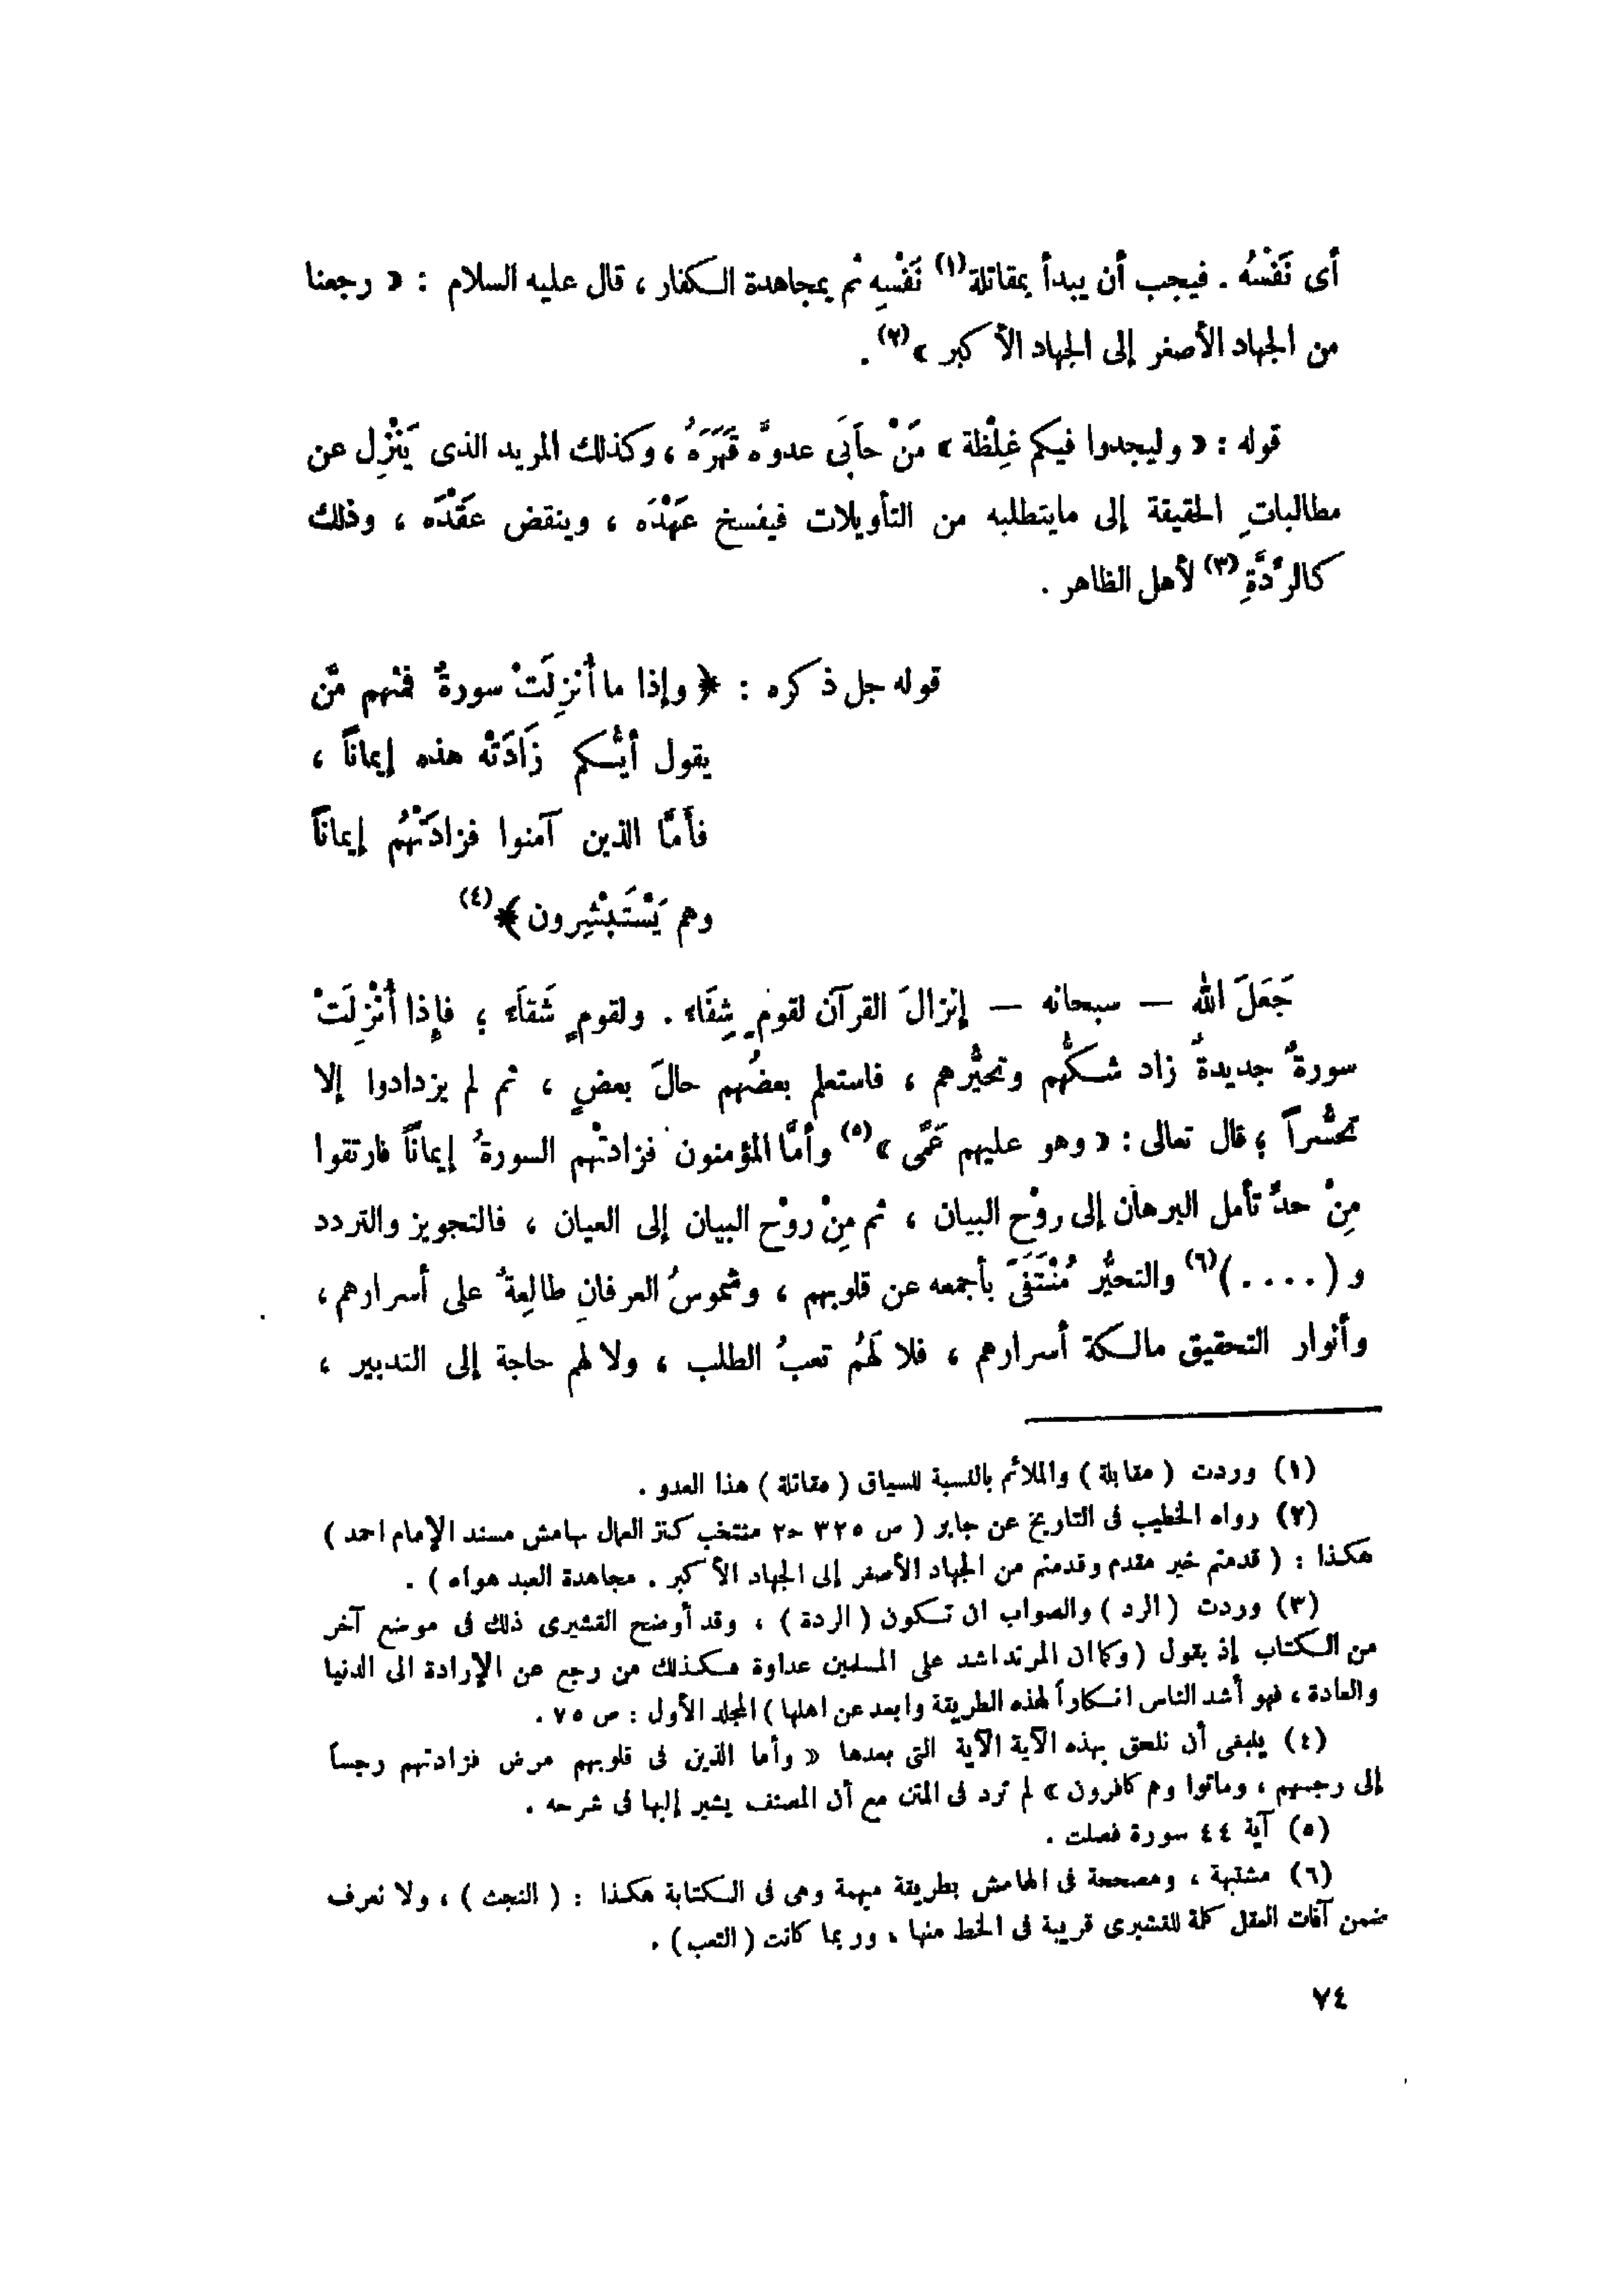 أى نَفْسُه . فيجب أن يبدأ بمقاتلة(١) نَفْسِه ثم بمجاهدة الكفار ، قال عليه السلام : « رجعنا
من الجهاد الأصغر إلى الجهاد الأكبر »(٢) .
قوله : « وليجدوا فيكم غِلْظة » مَنْ حابَى عدوَّه قَهَرَهُ ، وكذلك المريد الذى يَنْزِل عن
مطالباتِ الحقيقة إلى مايتطلبه من التأويلات فيفسخ عَهْدَه ، وينقض عَقْدَه ، وذلك
كالرِّدَّةِ(٣) لأهل الظاهر .
قوله جل ذكره : ﴿ وإذا ما أُنزِلَتْ سورةٌ فمنهم مَّن
يقول أيُّكم زَادَتْه هذه إيماناً ،
فأمَّا الذين آمنوا فزادَتْهُم إيماناً
وهم يَسْتَبْشِرون﴾(٤)
جَعَلَ الله — سبحانه — إنزالَ القرآن لقومٍ شِفَاء . ولقومٍ شَقَاَء ؛ فإذا أُنْزِلَتْ
سورةٌ جديدةٌ زاد شكُّهم وتحيُّرهم ، فاستعلم بعضُهم حالَ بعضٍ ، ثم لم يزدادوا إلا
تحسُّراً ؛ قال تعالى : « وهو عليهم عَمًى »(٥) وأمَّا المؤمنون فزادتْهم السورةُ إيماناً فارتقوا
مِنْ حدِّ تأمل البرهان إلى روْح البيان ، ثم مِنْ روْح البيان إلى العيان ، فالتجويز والتردد
و ( . . . . )(٦) والتحيُّر مُنْتَفَىَ بأجمعه عن قلوبهم ، وشموسُ العرفانِ طالِعةٌ على أسرارهم ،
وأنوار التحقيق مالكة أسرارهم ، فلا لَهُم تعبُ الطلب ، ولا لهم حاجة إلى التدبير ،
(١) وردت ( مقابلة ) والملائم بالنسبة للسياق ( مقاتلة ) هذا العدو .
(٢) رواه الخطيب فى التاريخ عن جابر ( ص ٣٢٥ ح٢ منتخب كنز العمال بهامش مسند الإمام احمد )
هكذا : ( قدمتم خير مقدم وقدمتم من الجهاد الأصغر إلى الجهاد الأكبر . مجاهدة العبد هواه ) .
(٣) وردت ( الرد ) والصواب ان تكون ( الردة ) ، وقد أوضح القشيرى ذلك فى موضع آخر
من الكتاب إذ يقول ( وكما ان المرتد اشد على المسلمين عداوة فكذلك من رجع عن الإرادة الى الدنيا
والعادة ، فهو أشد الناس انكاراً لهذه الطريقة وابعد عن اهلها ) المجلد الأول : ص ٧٥ .
(٤) ينبغى أن نلحق بهذه الآية الآية التى بعدها « وأما الذين فى قلوبهم مرض فزادتهم رجساً
إلى رجسهم ، وماتوا وهم كافرون » لم ترد فى المتن مع أن المصنف يشير إليها فى شرحه .
(٥) آية ٤٤ سورة فصلت .
(٦) مشتبهة ، ومصححة فى الهامش بطريقة مبهمة وهى فى الكتابة هكذا : ( النجث ) ، ولا نعرف
ضمن آفات العقل كلمة للقشيرى قريبة فى الخط منها ، وربما كانت ( التعب ) .
٧٤